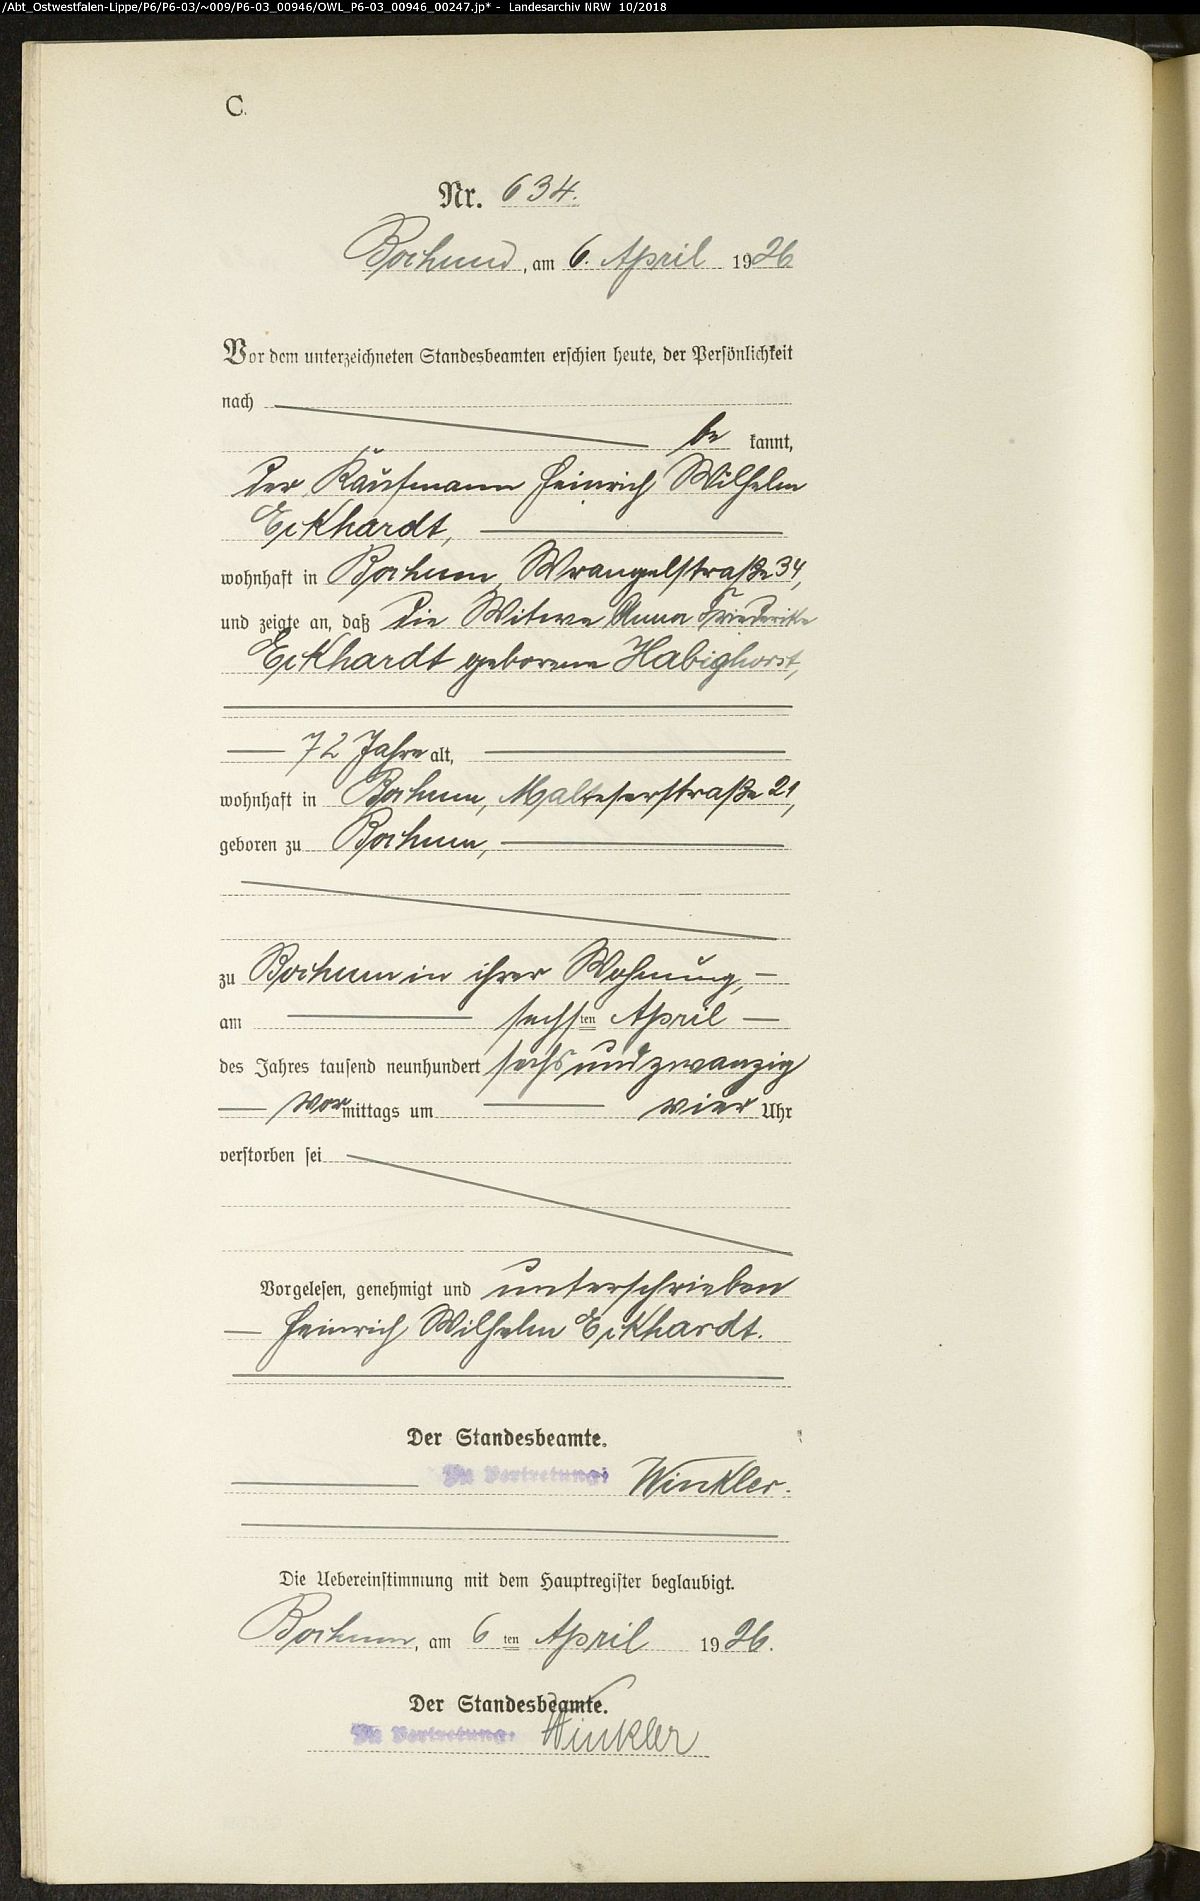 /Abt_Ostwestfalen-Lippe/P6/P6-03/~009/P6-03_00946/OWL_P6-03_00946_00247.jp* - Landesarchiv NRW 10/2018
C.
Nr. 634.
Bochum, am 6. April 1926
Vor dem unterzeichneten Standesbeamten erschien heute, der Persönlichkeit
nach
be kannt,
der Kaufmann Heinrich Wilhelm
Eckhardt,
wohnhaft in Bochum, Wrangelstraße 34,
und zeigte an, daß die Witwe Anna Friederike
Eckhardt geborene Habighorst,
72 Jahre alt,
wohnhaft in Bochum, Malteserstraße 21,
geboren zu Bochum,
zu Bochum in ihrer Wohnung,
am sechsten April
des Jahres tausend neunhundert sechsundzwanzig
Vormittags um vier Uhr
verstorben sei
Vorgelesen, genehmigt und unterschrieben
Heinrich Wilhelm Eckhardt.
Der Standesbeamte.
In Vertretung: Winkler.
Die Uebereinstimmung mit dem Hauptregister beglaubigt.
Bochum, am 6ten April 1926.
Der Standesbeamte.
In Vertretung: Winkler